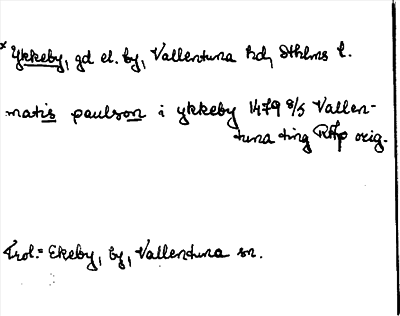 × Ykkeby, gd el. by, Vallentuna hd, Sthlms l.
matis paulson i ykkeby 1479 8/5 Vallen-
tuna ting RAp orig.
Trol. = Ekeby, by, Vallentuna sn.